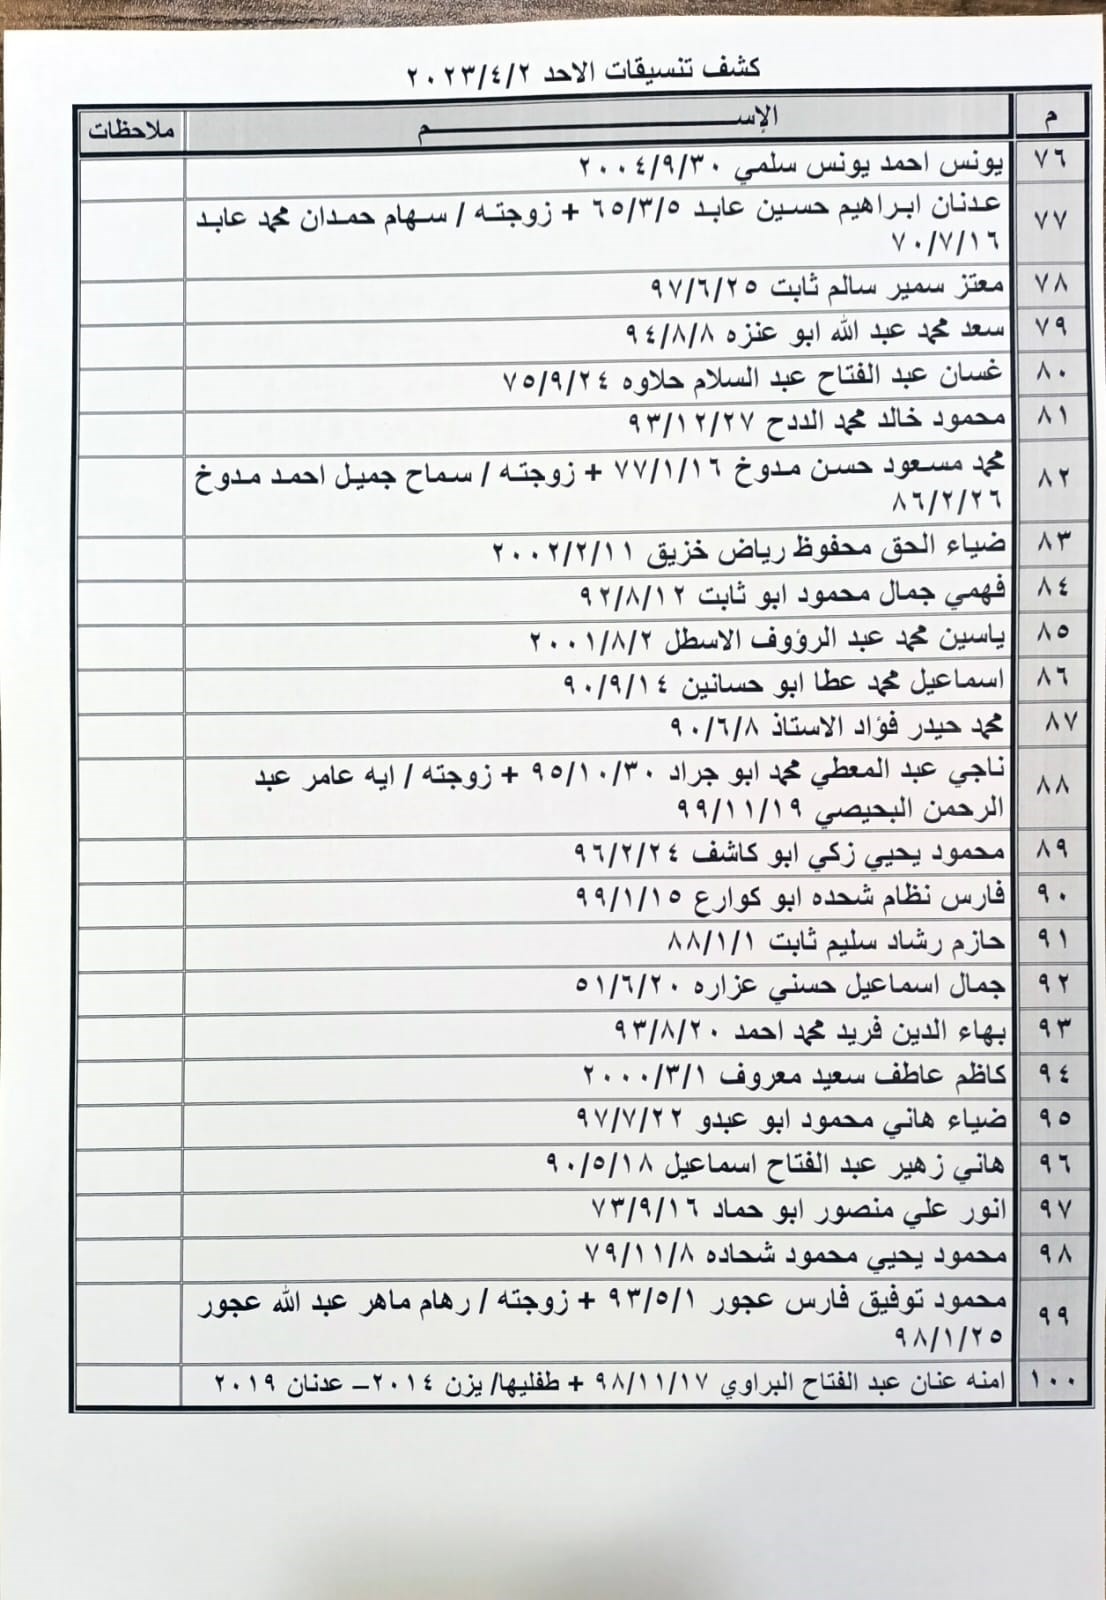 كشف تنسيقات الاحد ٢٠٢٣/٤/٢
م الإســــــــم ملاحظات
٧٦ يونس احمد يونس سلمي ٢٠٠٤/٩/٣٠
٧٧ عدنان ابراهيم حسين عابد ٦٥/٣/٥ + زوجته / سهام حمدان محمد عابد
٧٠/٧/١٦
٧٨ معتز سمير سالم ثابت ٩٧/٦/٢٥
٧٩ سعد محمد عبد الله ابو عنزه ٩٤/٨/٨
٨٠ غسان عبد الفتاح عبد السلام حلاوه ٧٥/٩/٢٤
٨١ محمود خالد محمد الددح ٩٣/١٢/٢٧
٨٢ محمد مسعود حسن مدوخ ٧٧/١/١٦ + زوجته / سماح جميل احمد مدوخ
٨٦/٢/٢٦
٨٣ ضياء الحق محفوظ رياض خزيق ٢٠٠٢/٢/١١
٨٤ فهمي جمال محمود ابو ثابت ٩٢/٨/١٢
٨٥ ياسين محمد عبد الرؤوف الاسطل ٢٠٠١/٨/٢
٨٦ اسماعيل محمد عطا ابو حسانين ٩٠/٩/١٤
٨٧ محمد حيدر فؤاد الاستاذ ٩٠/٦/٨
٨٨ ناجي عبد المعطي محمد ابو جراد ٩٥/١٠/٣٠ + زوجته / ايه عامر عبد
الرحمن البحيصي ٩٩/١١/١٩
٨٩ محمود يحيي زكي ابو كاشف ٩٦/٢/٢٤
٩٠ فارس نظام شحده ابو كوارع ٩٩/١/١٥
٩١ حازم رشاد سليم ثابت ٨٨/١/١
٩٢ جمال اسماعيل حسني عزاره ٥١/٦/٢٠
٩٣ بهاء الدين فريد محمد احمد ٩٣/٨/٢٠
٩٤ كاظم عاطف سعيد معروف ٢٠٠٠/٣/١
٩٥ ضياء هاني محمود ابو عبدو ٩٧/٧/٢٢
٩٦ هاني زهير عبد الفتاح اسماعيل ٩٠/٥/١٨
٩٧ انور علي منصور ابو حماد ٧٣/٩/١٦
٩٨ محمود يحيي محمود شحاده ٧٩/١١/٨
٩٩ محمود توفيق فارس عجور ٩٣/٥/١ + زوجته / رهام ماهر عبد الله عجور
٩٨/١/٢٥
١٠٠ امنه عنان عبد الفتاح البراوي ٩٨/١١/١٧ + طفليها/ يزن ٢٠١٤– عدنان ٢٠١٩